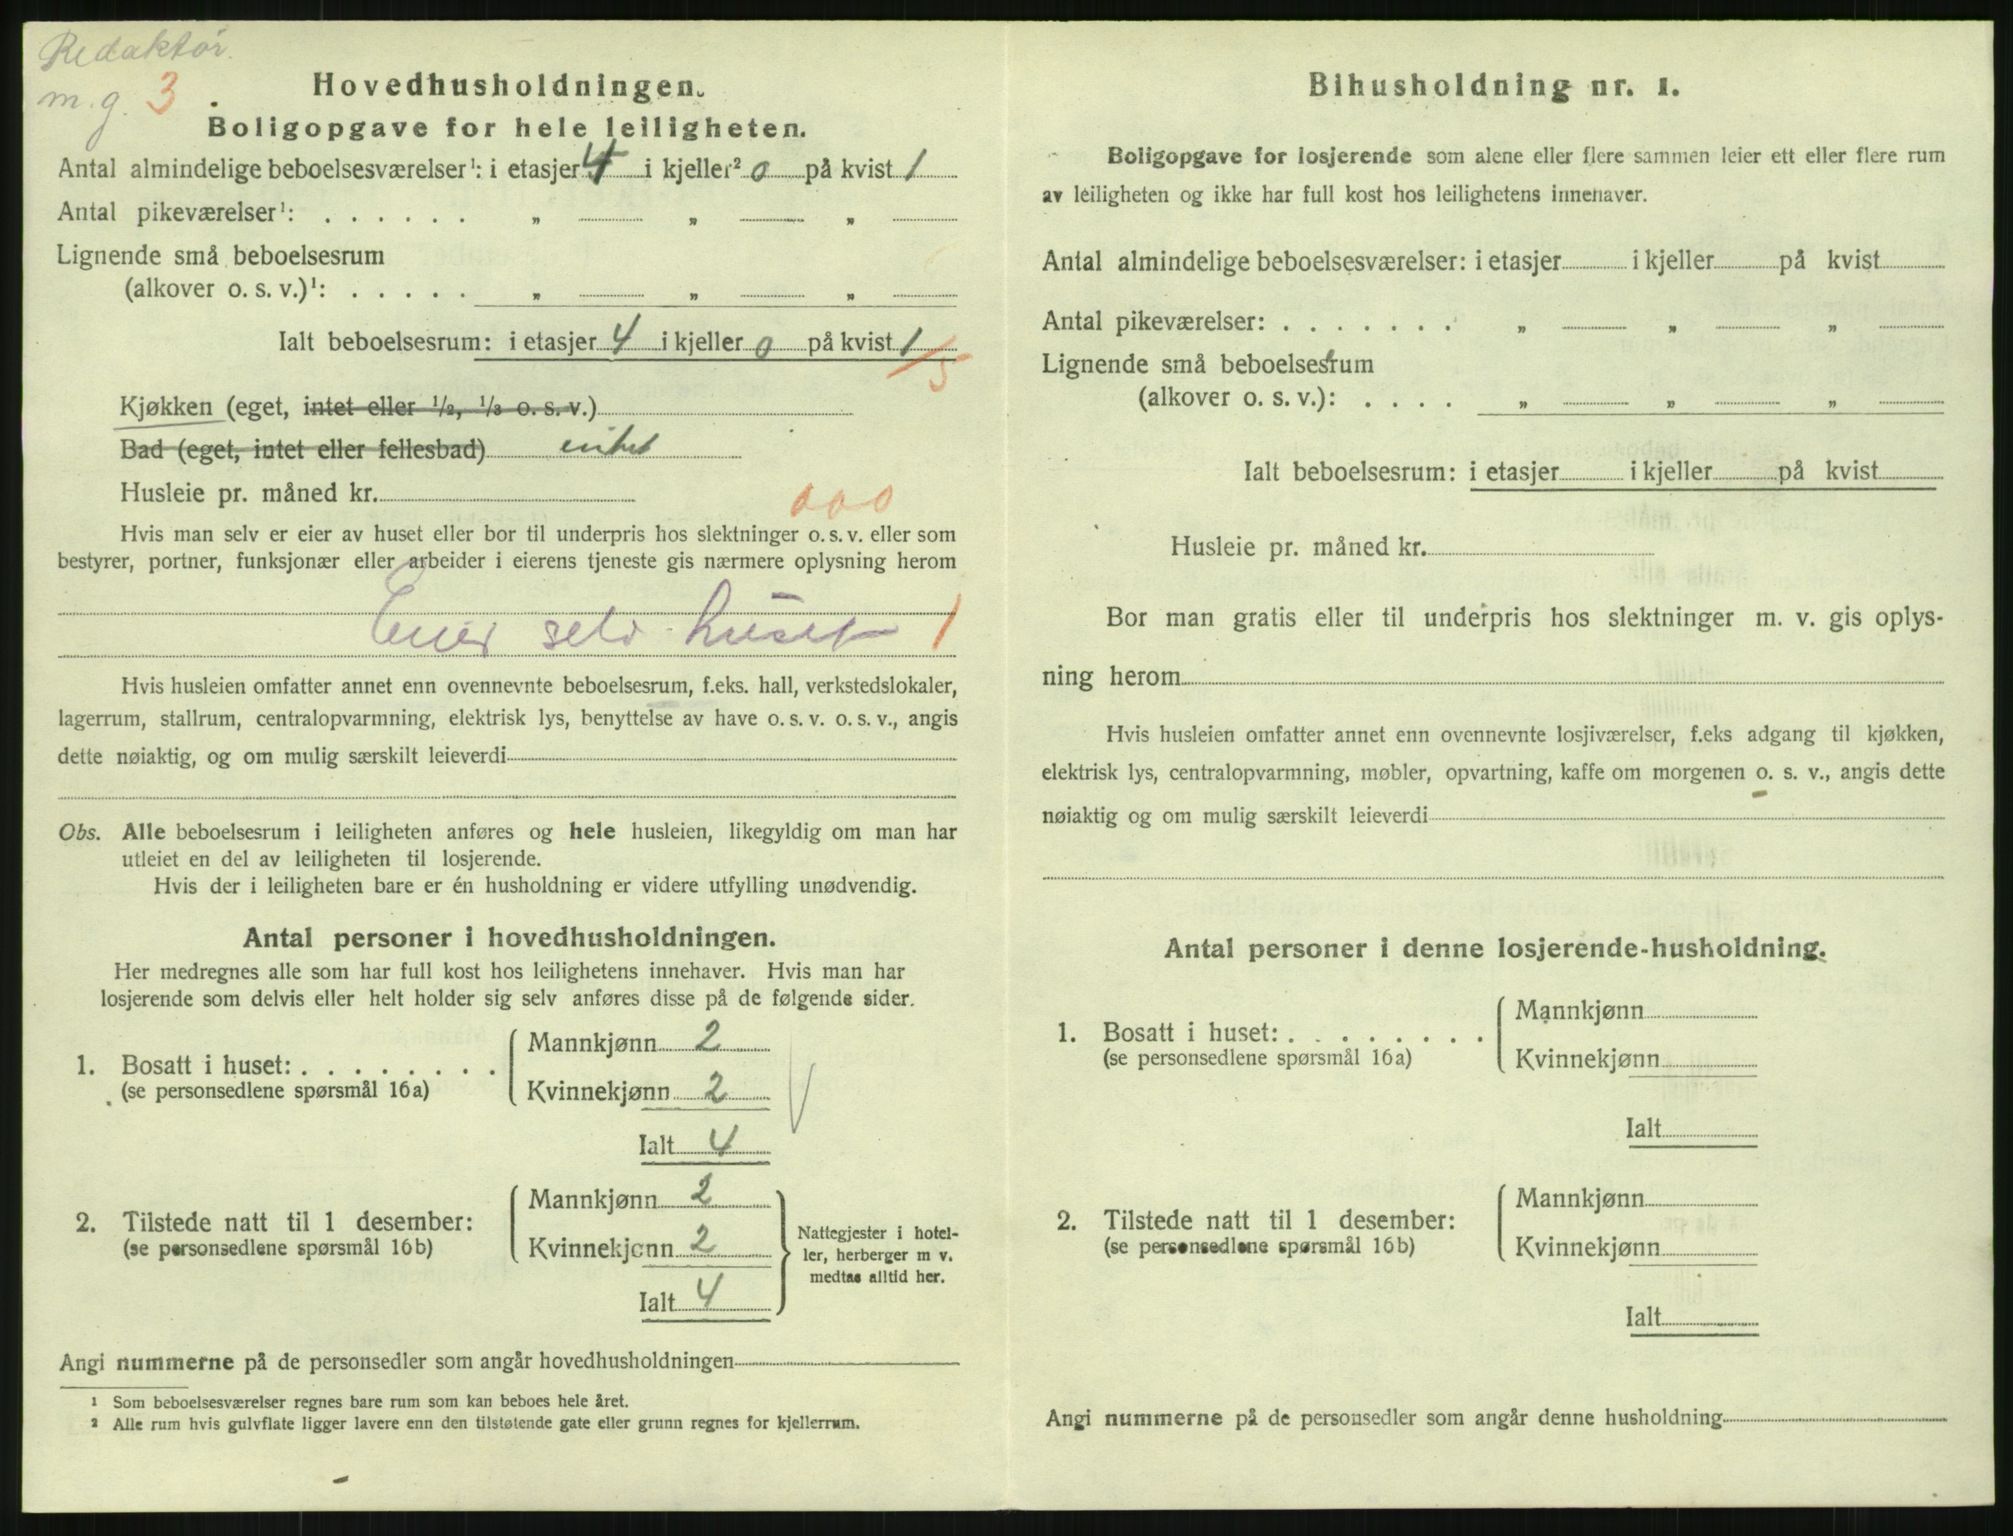 Redaktør.
m.g. 3
Hovedhusholdningen.
Boligopgave for hele leiligheten.
Antal almindelige beboelsesværelser¹: i etasjer 4 i kjeller² 0 på kvist 1
Antal pikeværelser¹: . . . . . . „ „ „
Lignende små beboelsesrum
(alkover o. s. v.)¹: . . . . . „ „ „
Ialt beboelsesrum: i etasjer 4 i kjeller 0 på kvist 1
/5
Kjøkken (eget, intet eller ½, ⅓ o. s. v.)
Bad (eget, intet eller fellesbad) intet
Husleie pr. måned kr.
000
Hvis man selv er eier av huset eller bor til underpris hos slektninger o. s. v. eller som
bestyrer, portner, funksjonær eller arbeider i eierens tjeneste gis nærmere oplysning herom
Eier selv huset 1
Hvis husleien omfatter annet enn ovennevnte beboelsesrum, f.eks. hall, verkstedslokaler,
lagerrum, stallrum, centralopvarmning, elektrisk lys, benyttelse av have o. s. v. o. s. v., angis
dette nøiaktig, og om mulig særskilt leieverdi
Obs. Alle beboelsesrum i leiligheten anføres og hele husleien, likegyldig om man har
utleiet en del av leiligheten til losjerende.
Hvis der i leiligheten bare er én husholdning er videre utfylling unødvendig.
Antal personer i hovedhusholdningen.
Her medregnes alle som har full kost hos leilighetens innehaver. Hvis man har
losjerende som delvis eller helt holder sig selv anføres disse på de følgende sider.
1. Bosatt i huset: . . . . . . . .
(se personsedlene spørsmål 16a)
Mannkjønn 2
Kvinnekjønn 2
Ialt 4
2. Tilstede natt til 1 desember:
(se personsedlene spørsmål 16b)
Mannkjønn 2
Kvinnekjønn 2
Ialt 4
Nattegjester i hotel-
ler, herberger m v.
medtas alltid her.
Angi nummerne på de personsedler som angår hovedhusholdningen
¹ Som beboelsesværelser regnes bare rum som kan beboes hele året.
² Alle rum hvis gulvflate ligger lavere enn den tilstøtende gate eller grunn regnes for kjellerrum.
Bihusholdning nr. 1.
Boligopgave for losjerende som alene eller flere sammen leier ett eller flere rum
av leiligheten og ikke har full kost hos leilighetens innehaver.
Antal almindelige beboelsesværelser: i etasjer i kjeller på kvist
Antal pikeværelser: . . . . . . . „ „ „
Lignende små beboelsesrum
(alkover o. s. v.): . . . . „ „ „
Ialt beboelsesrum: i etasjer i kjeller på kvist
Husleie pr. måned kr.
Bor man gratis eller til underpris hos slektninger m. v. gis oplys-
ning herom
Hvis husleien omfatter annet enn ovennevnte losjiværelser, f.eks adgang til kjøkken,
elektrisk lys, centralopvarmning, møbler, opvartning, kaffe om morgenen o. s. v., angis dette
nøiaktig og om mulig særskilt leieverdi
Antal personer i denne losjerende-husholdning.
1. Bosatt i huset: . . . . . . . .
(se personsedlene spørsmål 16a)
Mannkjønn
Kvinnekjønn
Ialt
2. Tilstede natt til 1 desember:
(se personsedlene spørsmål 16b)
Mannkjønn
Kvinnekjønn
Ialt
Angi nummerne på de personsedler som angår denne husholdning